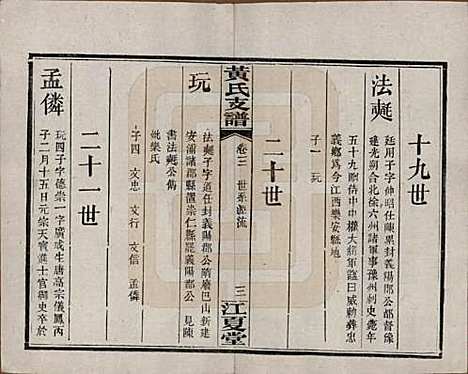 十九世
法㲀
廷用子字仲昭仕陳累封義陽郡公都督豫
建光朔合北徐六州諸軍事豫州刺史薨年
五十九贈侍中中權大將軍諡曰威勅葬忠
義鄉爲今江西樂安縣地
子一 玩
二十世
黃氏支譜
卷三 世系源流
三
江夏堂
玩
法㲀子字道任封義陽郡公隋廢巴山新建
安浦諸郡縣寘崇仁縣罷義陽郡公 見陳
書法㲀公傳
妣樂氏
子四 文忠 文行 文信 孟儕
二十一世
孟儕
玩四子字德崇一字廣成生唐高宗儀鳳丙
子二月十五日元宗天寶進士官御史卒於